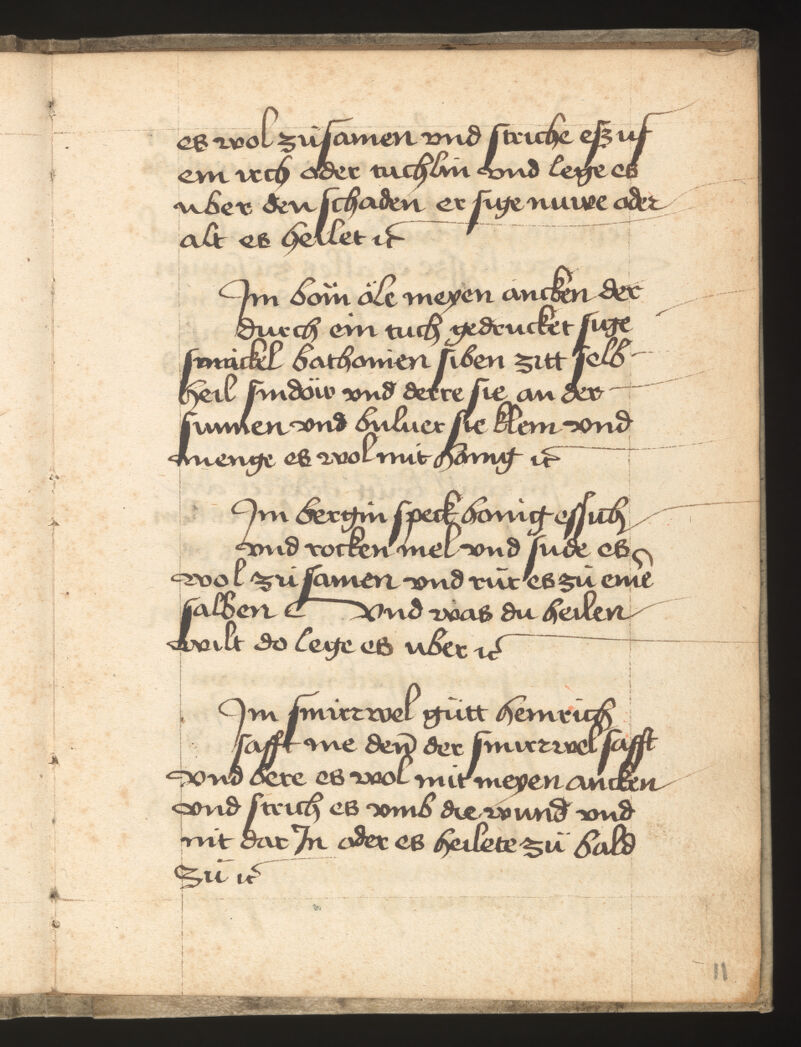 es wol zůsamen vnd striche esz uf
ein irch oder tuchlin vnd lege es
uber den schaden er sige nuwe oder
alt es heilet ꝛc
Jm boim öle meyen ancken der
durch ein tuch gedrucket sige
sinickel bathonien siben zitt selb
heil sindöw vnd derre sie an der
sunnen vnd buluer sie klein vnd
menge es wol mit honig ꝛc
Jm bergin speck honig essich
vnd rocken mel vnd sude es
wol zůsamen vnd rür es zů einē
salben vnd was du heilen
wilt do lege es uber ꝛc
Jm smirzwel gůtt heinrich
safft me den̄ der smirzwel safft
vnd bere es wol mit meyen ancken
vnd strich es vmb die wund vnd
nit dar Jn oder es heilete zů bald
zů ꝛc
11